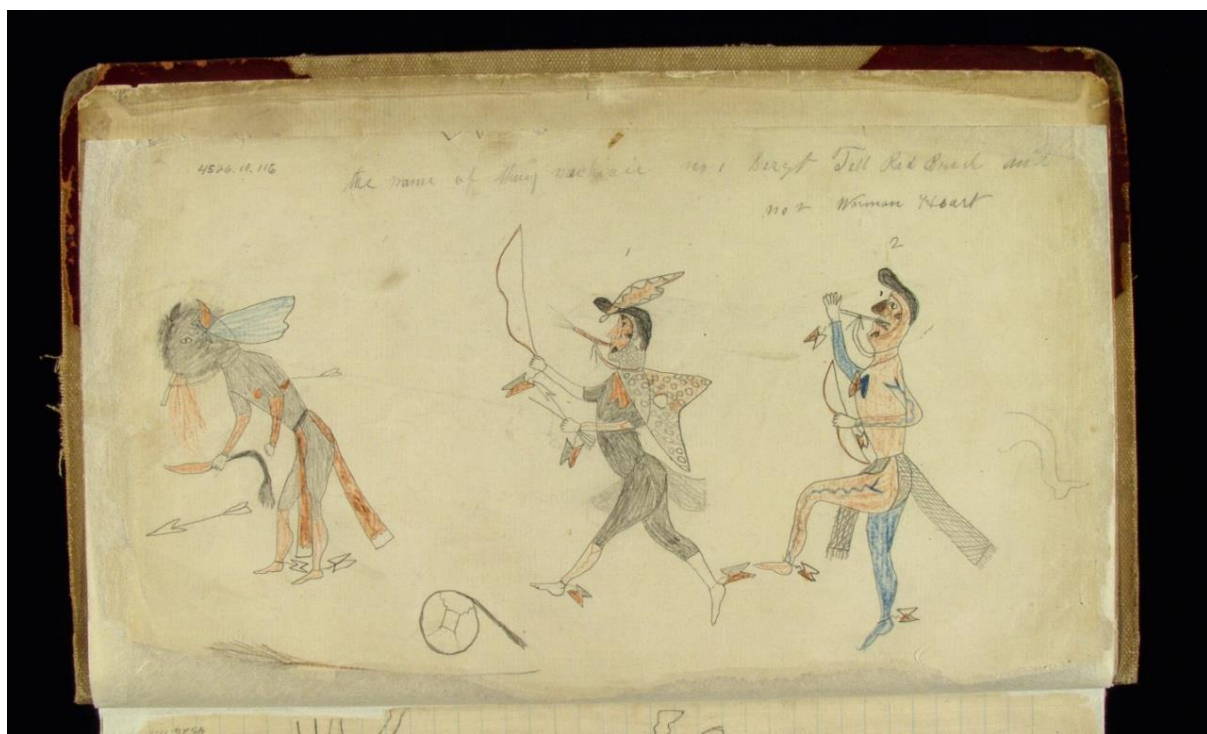 4526.10.116
the name of they no 1 Sergt Tall Red Bird and
no 2 Woman Heart
1
2